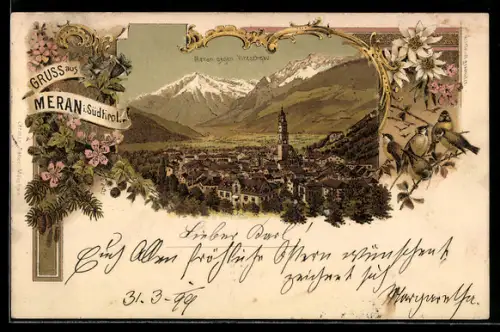 GRUSS aus
MERAN i. Südtirol.
Meran gegen
Lieber Karl!
Euch Allen fröhliche Ostern wünschent
zeichnet sich
31-3-99
Margaretha.